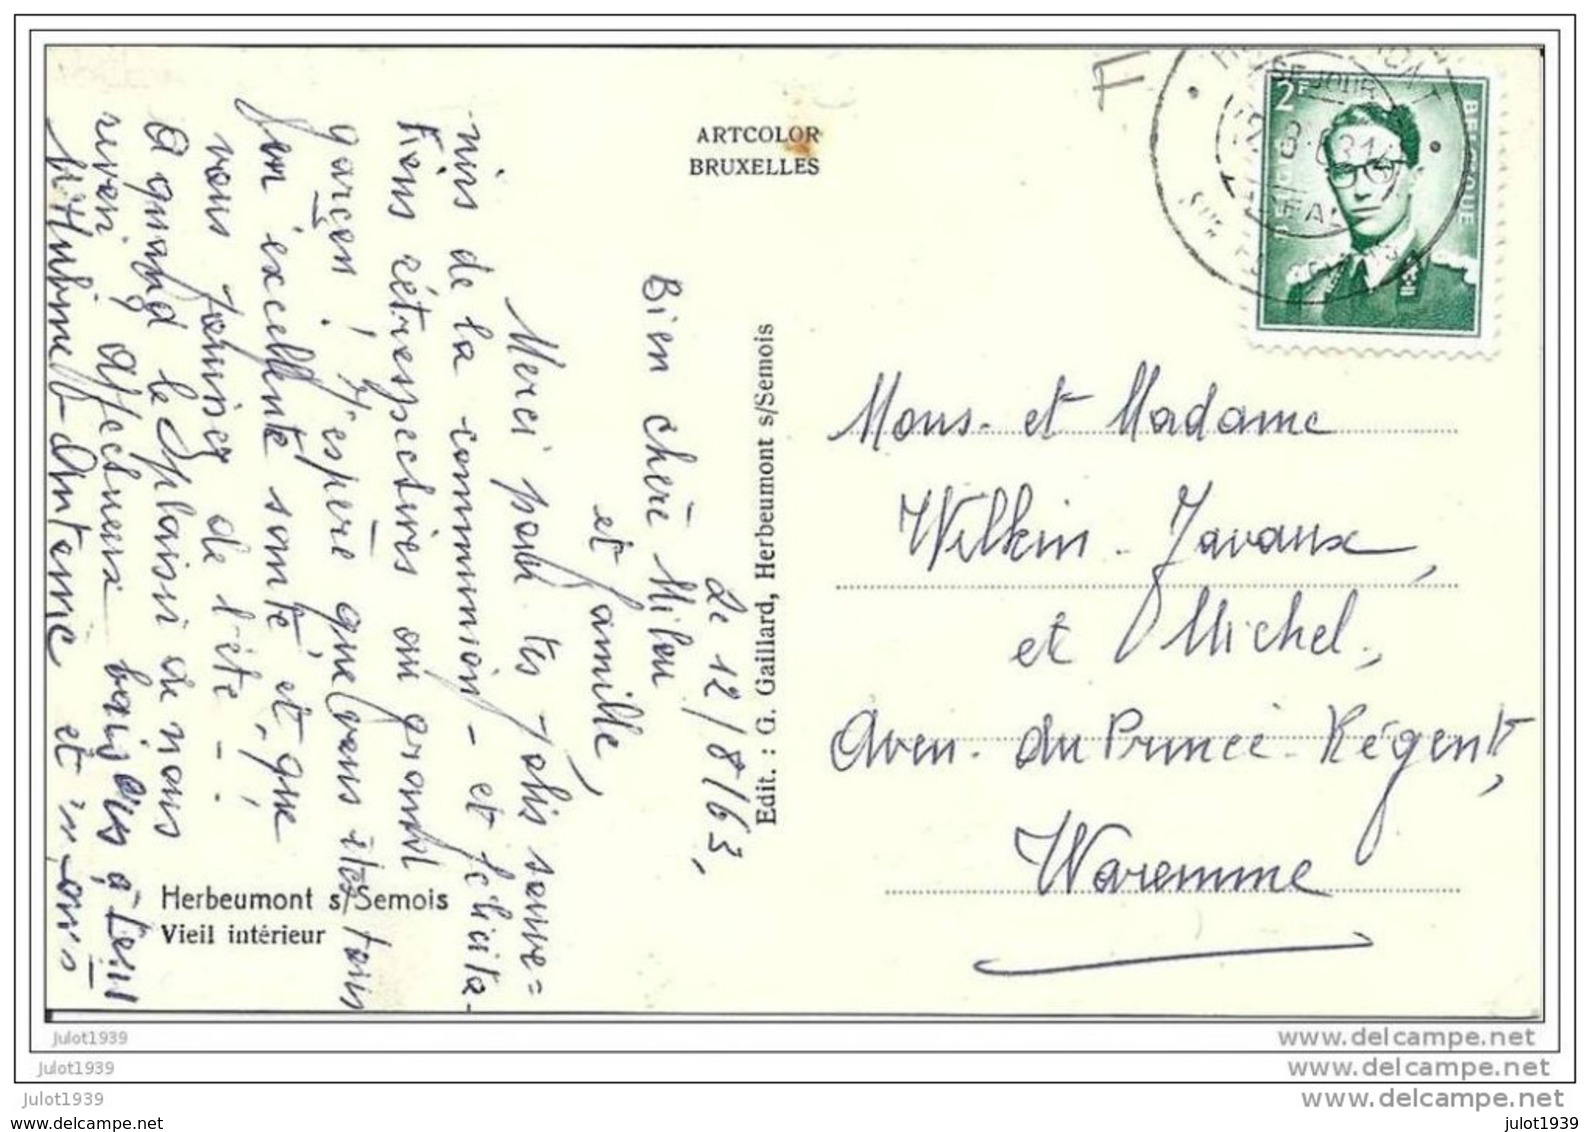 ARTCOLOR
BRUXELLES
F
2F
BELGIQUE
SÉJOUR
Le 12/8/63,
Bien chère Milou
et famille,
Merci pour tes jolis souve=
nirs de la communion - et félicita-
tions rétrospectives au grand
garçon ! J'espère que vous êtes tous
en excellente santé et que
vous jouissez de l'été - !
A quand le plaisir de nous
revoir ? Affectueux baisers à tous
Edit. : G. Gaillard, Herbeumont s/Semois
Herbeumont s/Semois
Vieil intérieur
Mons. et Madame
Wilkin - Javaux,
et Michel,
Aven. du Prince - Régent,
Waremme
julot1939
www.delcampe.net
julot1939
www.delcampe.net
julot1939
www.delcampe.net
www.delcampe.net
julot1939